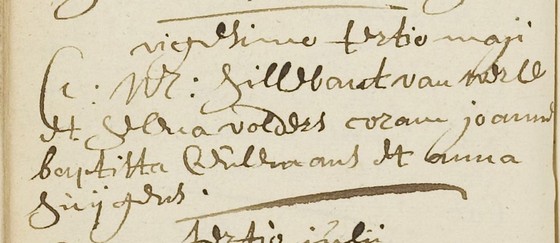 vigesimo tertio maji
C: Mr: Hillebant van Merle
et Helena volders coram joanne
baptista Ceulemans et anna
Huijgens.
tertio julij